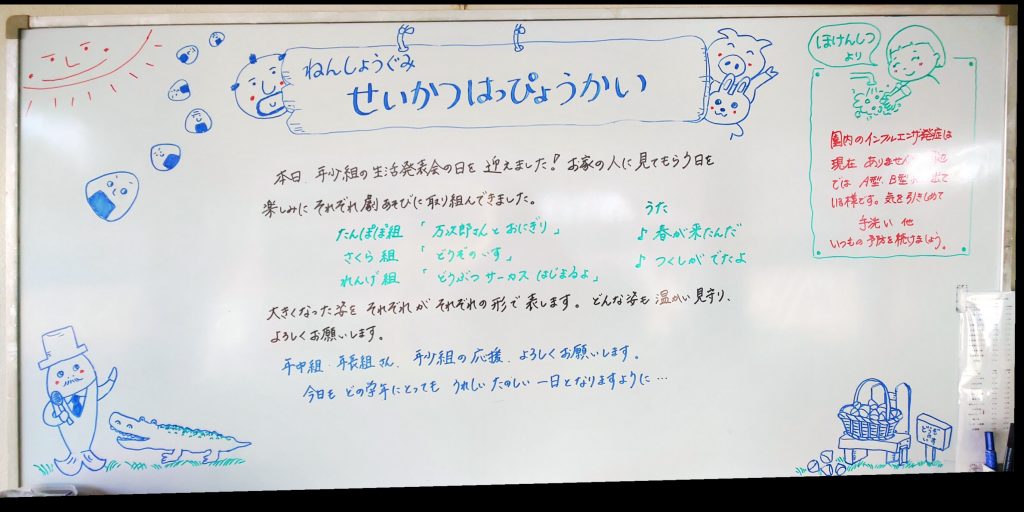 ねんしょうぐみ
せいかつはっぴょうかい
本日、年少組の生活発表会の日を迎えました！お家の人に見てもらう日を
楽しみにそれぞれ劇あそびに取り組んできました。
たんぽぽ組 「万次郎さんとおにぎり」
さくら組 「どうぞのいす」
れんげ組 「どうぶつサーカスはじまるよ」
うた
♪ 春が来たんだ
♪ つくしがでたよ
大きくなった姿をそれぞれがそれぞれの形で表します。どんな姿も温かい見守り、
よろしくお願いします。
年中組・年長組さん、年少組の応援、よろしくお願いします。
今日もどの学年にとってもうれしいたのしい一日となりますように…
ほけんしつ
より
園内のインフルエンザ発症は
現在ありません
では A型、B型
いる様です。気を引きしめて
手洗い他
いつもの予防を続けましょう。
どうぞ
の
いす